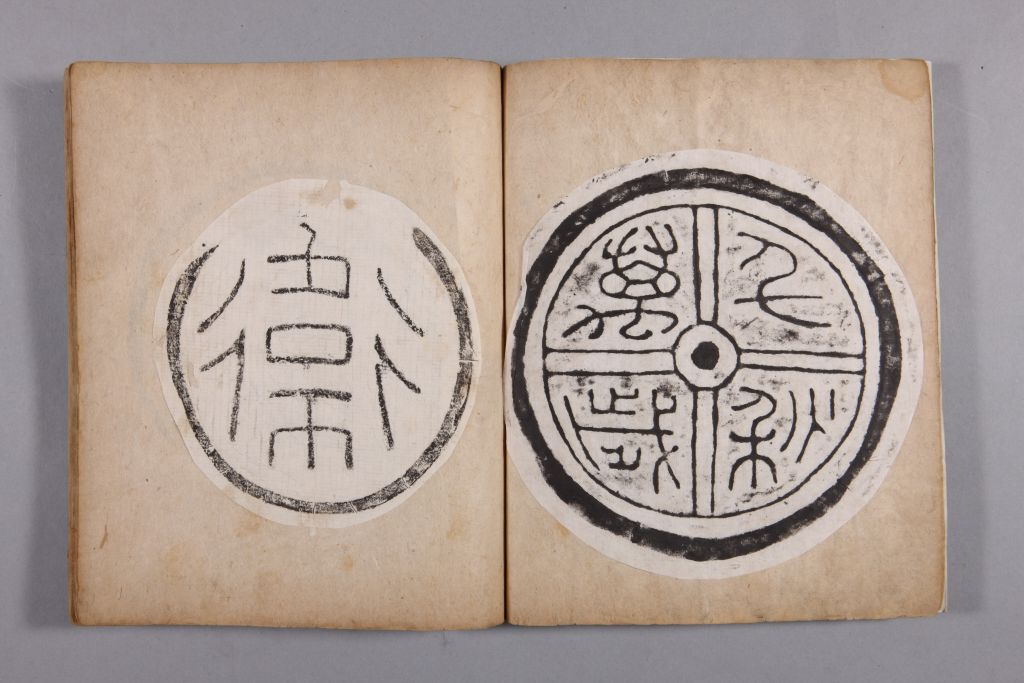 千秋
萬歲
衛